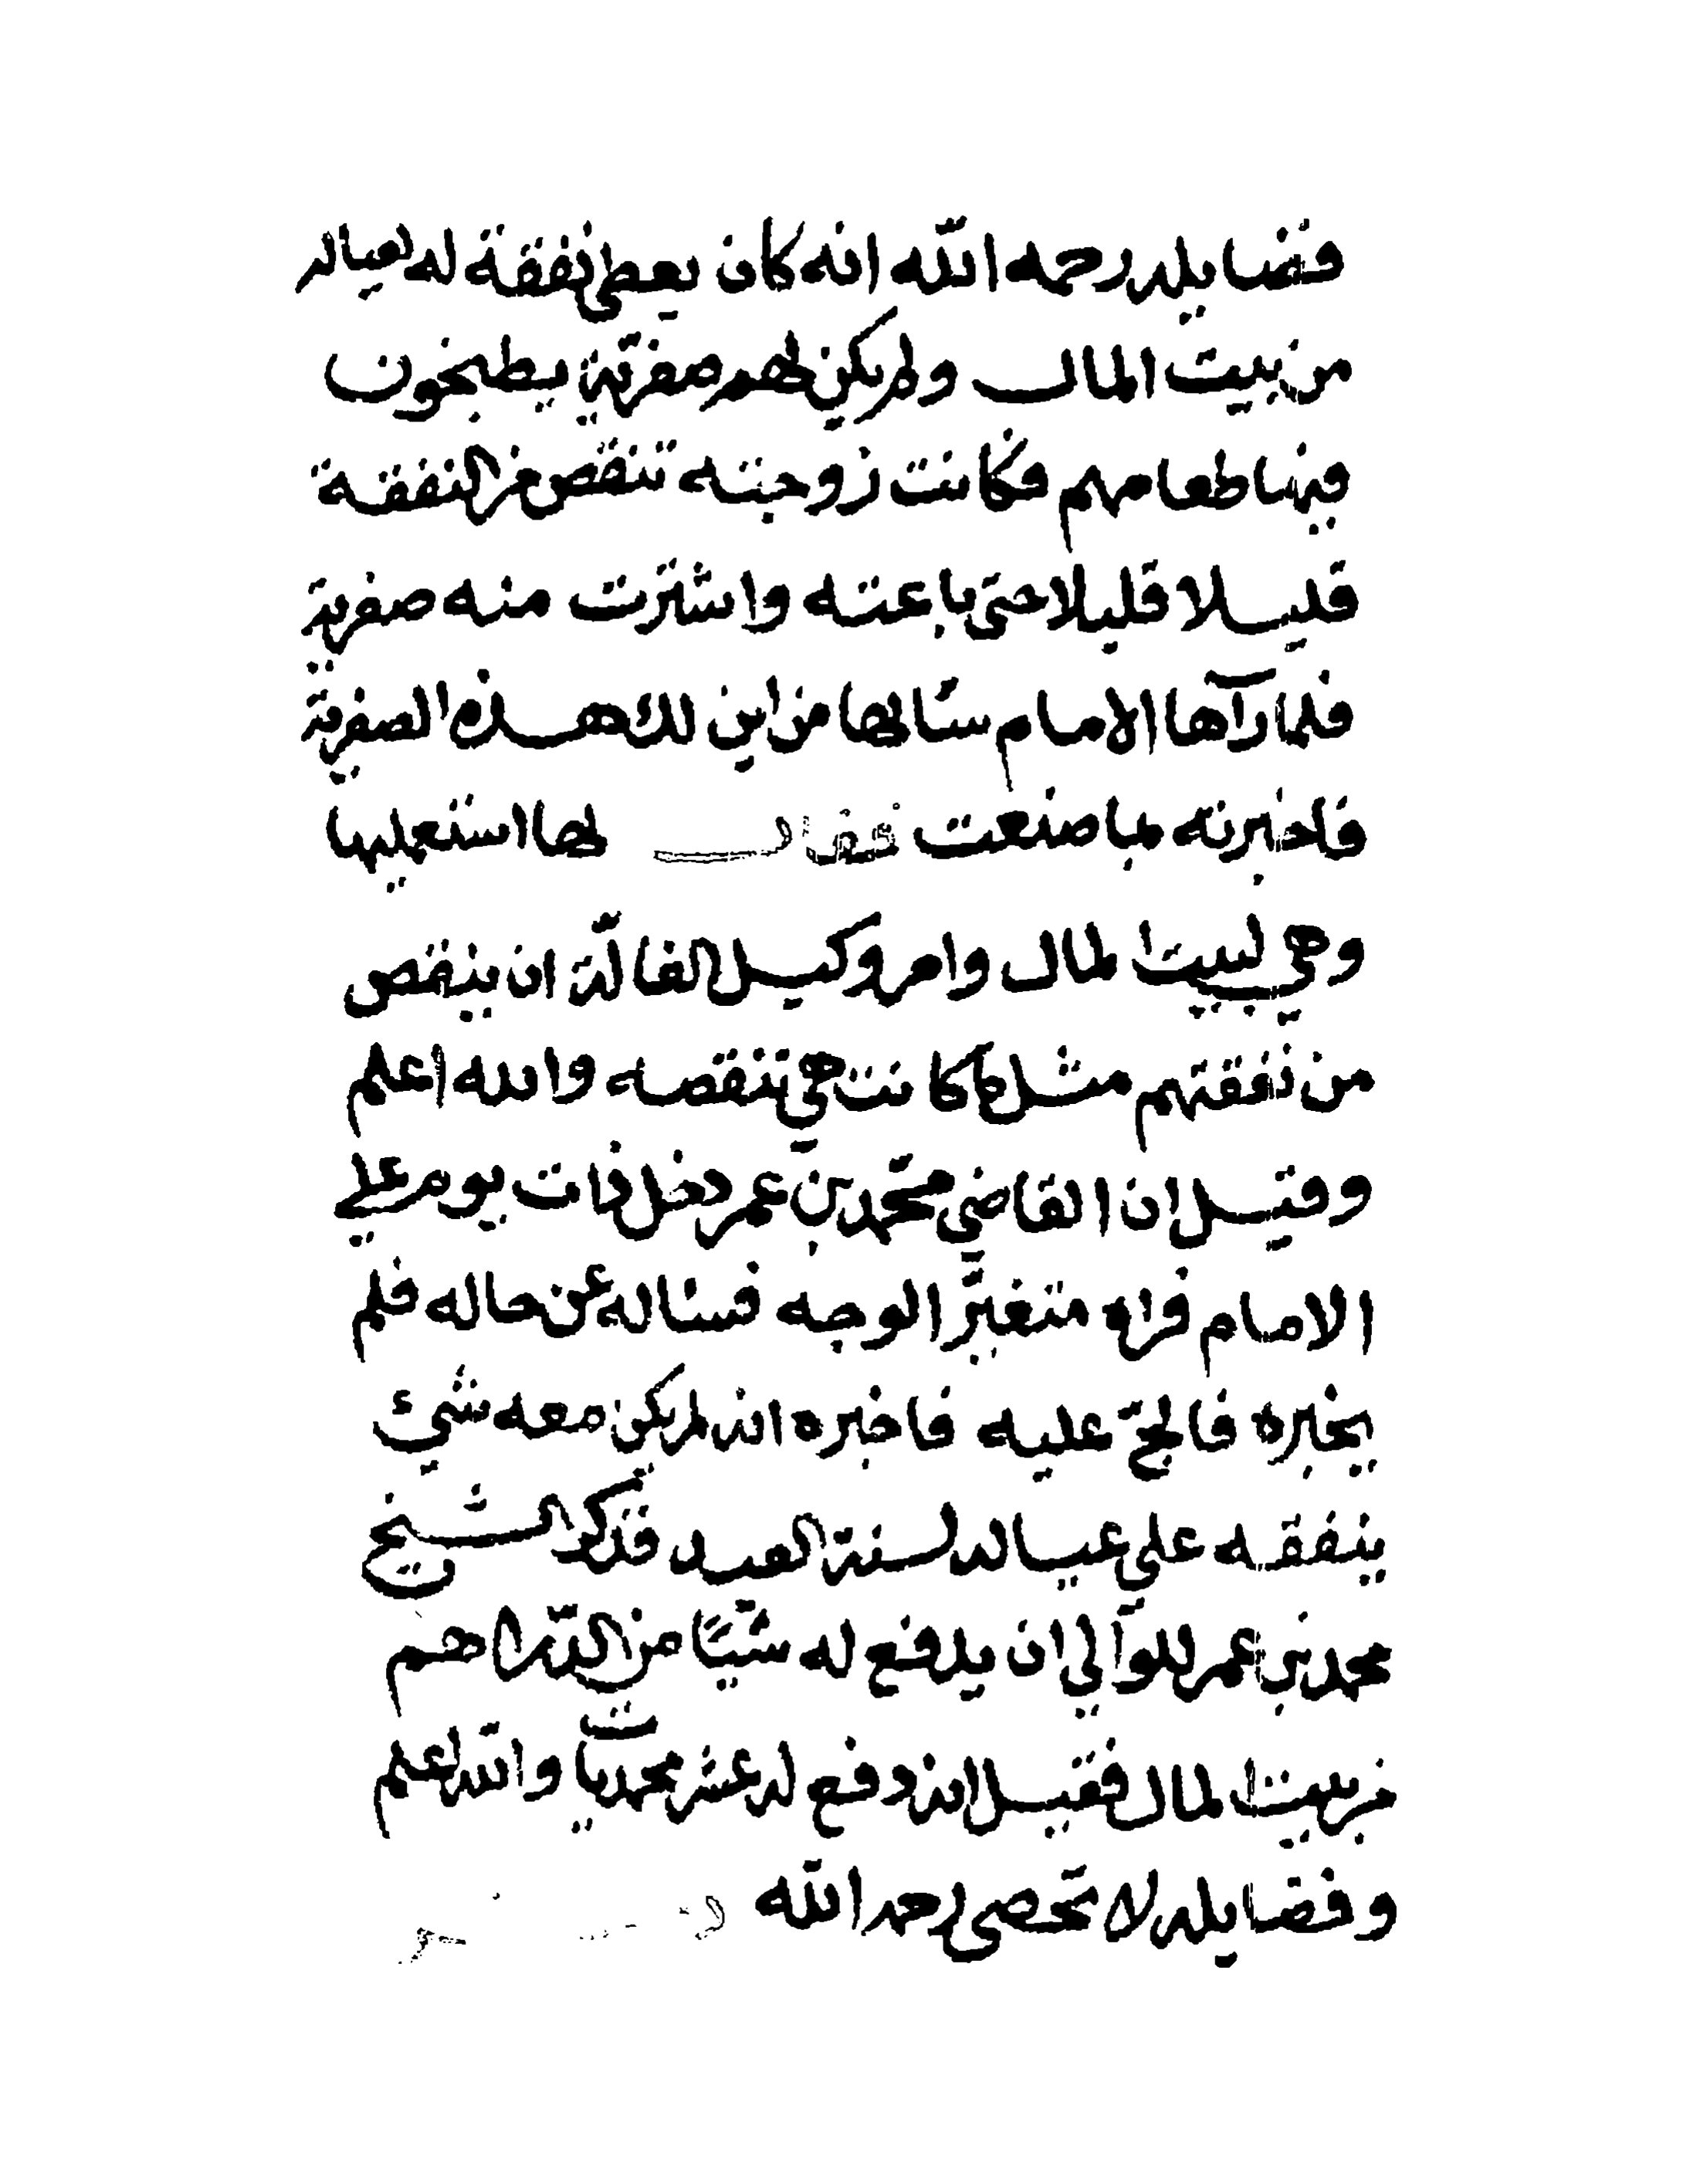 فضايله رحمه الله انه كان يعطي نفقة له لعياله
من بيت المال ولم يكن لهم صفرية يطبخون
فيها طعامهم فكانت زوجته تنقص من النفقة
قليلا قليلا حتى باعته واشترت منه صفرية
فلما رآها الامام سئالها من اين لك هذه الصفرية
فاخبرته بما صنعت فقال لها استعمليها
وهي لبيت المال وامر وكيل الغالّة ان ينقص
من نفقتهم مثل ما كانت هي تنقصه والله اعلم
وقيل ان القاضي محمد بن عمر دخل ذات يوم علي
الامام فراه متغيرّ الوجه فسئاله عن حاله فلم
يخبره فالحّ عليه فاخبره انه لم يكن معه شيء
ينفقه علي عياله لسنة العيد فذكر الشيخ
محمد بن عمر للوالي ان يدفع له شيئًا من الدّراهم
من بيت المال فقيل انه دفع له عشر محمديات والله اعلم
وفضايله لا تحصى رحمه الله